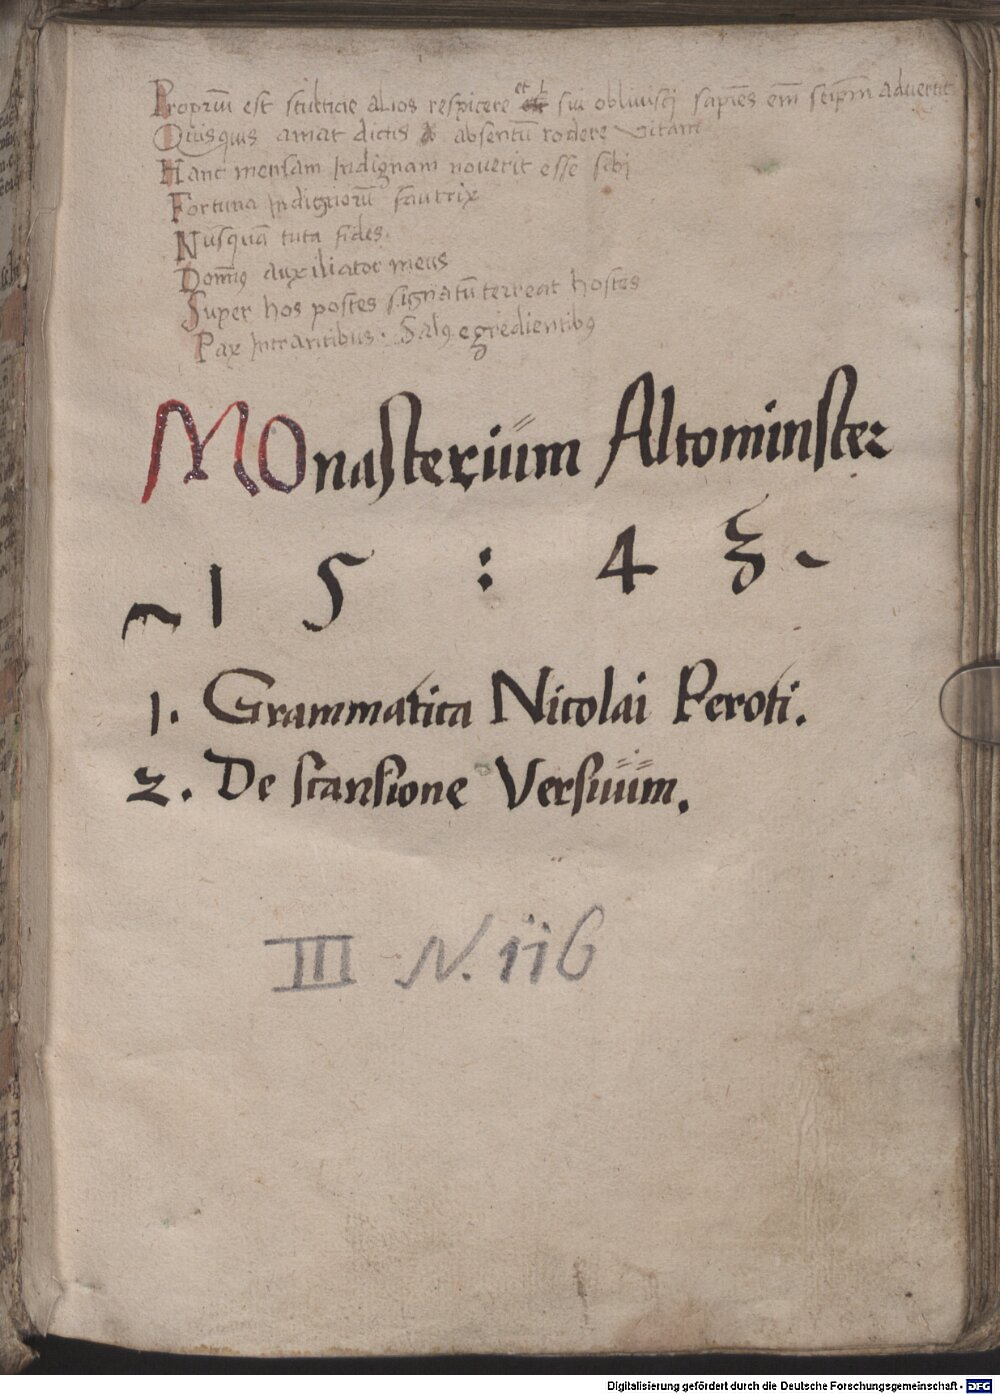 Propriū est stulticie alios respicere et sui oblivisci sapiēs em̄ seip̄m advertit
Quisquis amat dictis absentū rodere vitam
Hanc mensam Indignam noverit esse sibi
Fortuna Indignorū fautrix
Nusquā tuta fides.
Domīꝰ auxiliator meus
Super hos postes signatū terreat hostes
Pax Intrantibus. Salꝰ egredientibꝰ
MOnasterium Altominster
~15:43.
1. Grammatica Nicolai Peroti.
2. De scansione Versuum.
III N. 116
Digitalisierung gefördert durch die Deutsche Forschungsgemeinschaft - DFG